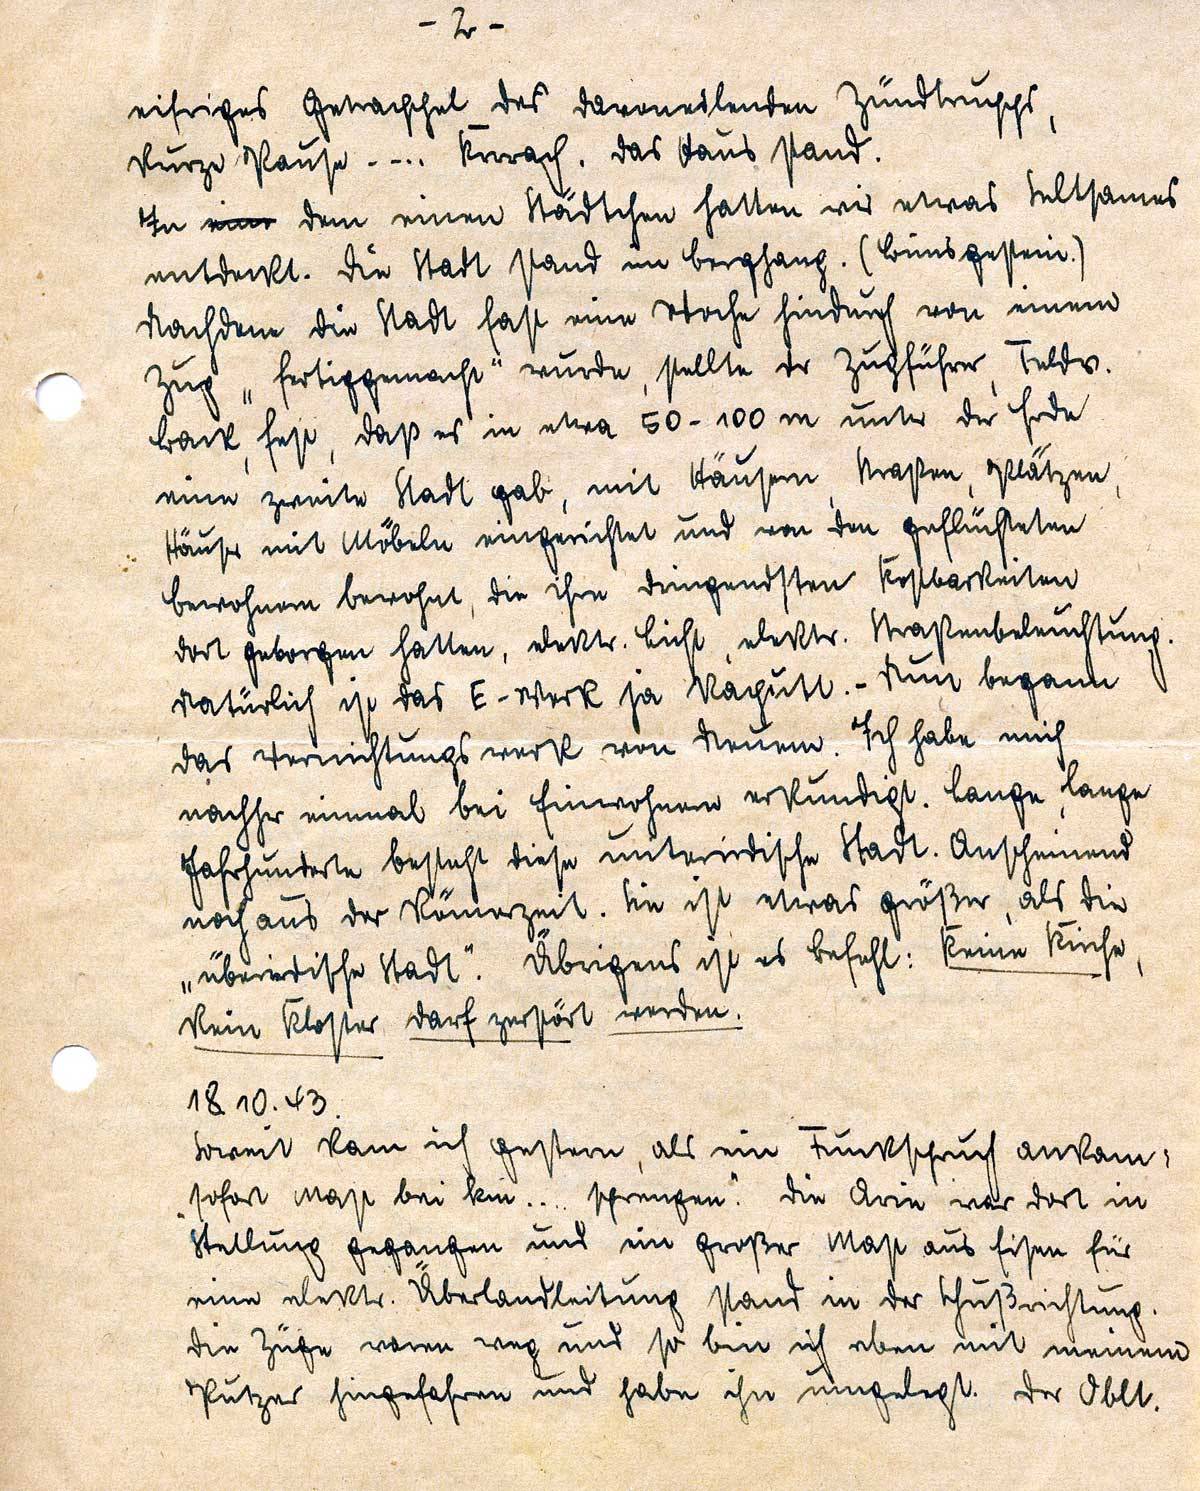 - 2 -
eifriges Getrachschel des davoneilenden Zündtrupps,
kurze Pause - - .. Krrrach. Das Haus stand.
In dem einen Städtchen hatten wir etwas Seltsames
entdeckt. Die Stadt stand im Berghang. (Bimsgestein.)
Nachdem die Stadt fast eine Woche hindurch von einem
Zug „fertiggemacht" wurde, stellte der Zugführer, Feldw.
Back, fest, daß es in etwa 50-100 m unter der Erde
eine zweite Stadt gab, mit Häusern, Straßen, Plätzen,
Häuser mit Möbeln eingerichtet und von den geflüchteten
Bewohnern bewohnt, die ihre dringendsten Kostbarkeiten
dort geborgen hatten, elektr. Licht, elektr. Straßenbeleuchtung.
Natürlich ist das E-Werk ja kaputt. - Nun begann
das Vernichtungswerk von Neuem. Ich habe mich
nachher einmal bei Einwohnern erkundigt. Lange, lange
Jahrhunderte besteht diese unterirdische Stadt. Anscheinend
noch aus der Römerzeit. Sie ist etwas größer, als die
„überirdische Stadt". Übrigens ist es Befehl: Keine Kirche,
kein Kloster darf zerstört werden.
18.10.43.
Soweit kam ich gestern, als ein Funkspruch ankam:
„sofort Mast bei Kin.... sprengen". Die Arie war dort in
Stellung gegangen und ein großer Mast aus Eisen für
eine elektr. Überlandleitung stand in der Schußrichtung.
Die Züge waren weg und so bin ich eben mit meinem
Putzer hingefahren und habe ihn umgelegt. Der Oblt.